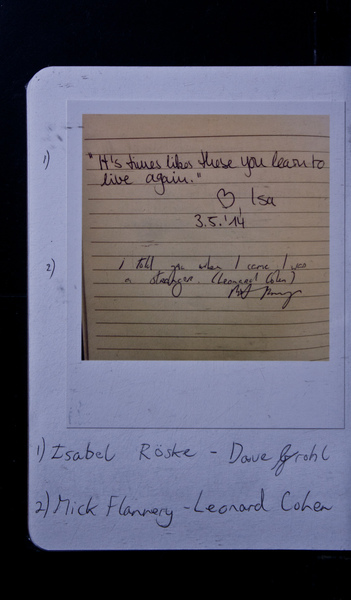 1) "It's times likes these you learn to
live again."
♡ Isa
3.5.'14
2) I told you when I came I was
a stranger. (Leonard Cohen)
1) Isabel Röske - Dave Grohl
2) Mick Flannery - Leonard Cohen